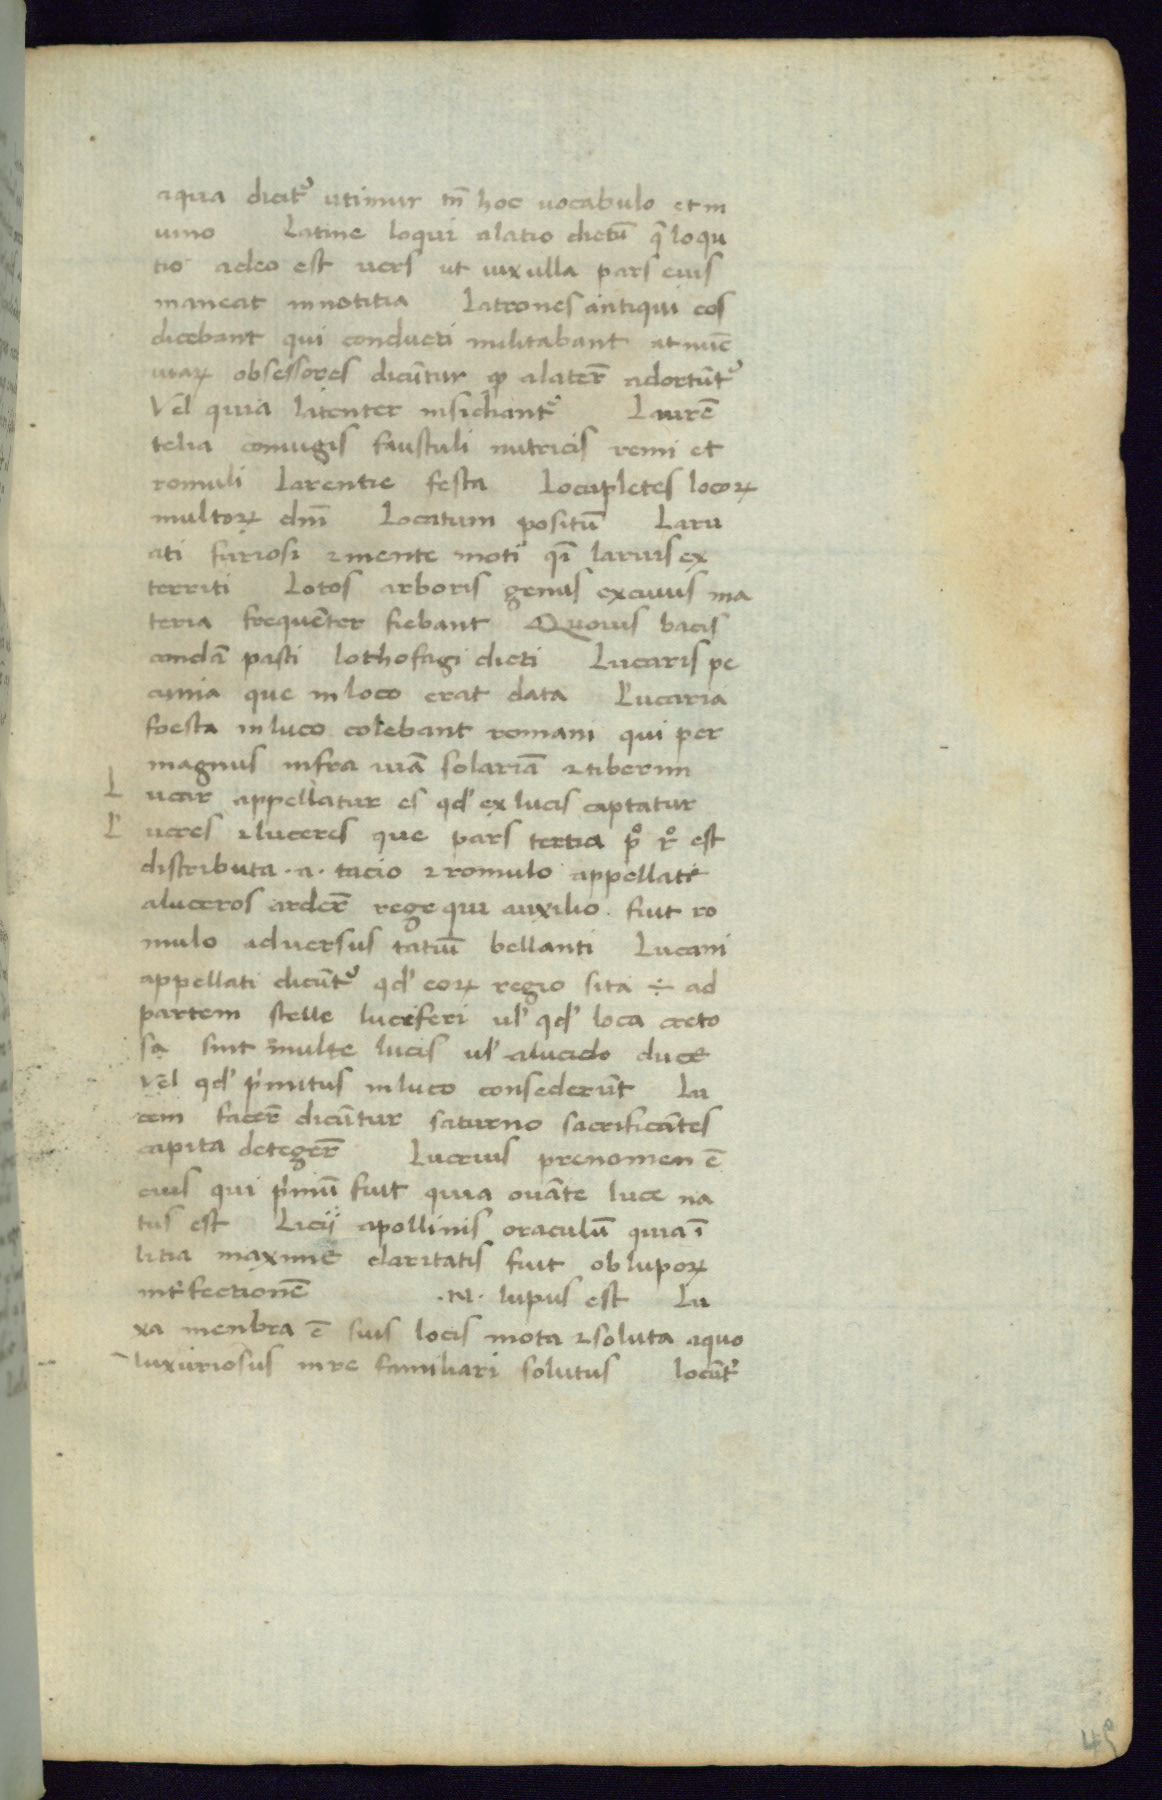 aqua dicitᷣ utimur tñ hoc uocabulo et in
uino Latine loqui alatio dictū q̄ loqu
tio adeo est uers ut uix ulla pars eius
maneat innotitia Latrones antiqui eos
dicebant qui conducti militabant at nūc
uiaꝝ obsessores dicūtur ꝙ alater̄ adortūtᷣ
Vel̄ quia latenter insidiantᷣ Laurē
telia coniugis faustuli nutricis remi et
romuli Larentie festa Locupletes locoꝝ
multoꝝ dñi Locatum positū Laru
ati furiosi ⁊mente moti qi̅ laruis ex
territi Lotos arboris genus excuius ma
teria frequēter fiebant Quouis bacis
condā pasti lothofagi dicti Lucaris pe
cunia que in loco erat data Lucaria
foesta in luco colebant romani qui per
magnus infra uiā solariā ⁊tiberim
L ucar appellatur es qđ ex lucis captatur
L uceres ⁊luceres que pars tertia pº rº est
distributa ·a· tacio ⁊romulo appellati
aluceros arder̄ rege qui auxilio fiut ro
mulo aduersus tatiū bellanti Lucani
appellati dicūtᷣ qđ eoꝝ regio sita ÷ ad
partem stelle luciferi ul' qđ loca creto
sa sint multe lucis ul' alucido duce
Vel̄ qđ p'mitus in luco consederūt Lu
cem facer̄ dicūtur saturno sacrificātes
capita deteger̄ Lucius prenomen ē
eius qui p'mū fuit quia ouāte luce na
tus est Licij apollinis oraculū quia ī
litia maxime claritatis fuit ob lupoꝝ
int'fectionē ·N· lupus est Lu
xa menbra ē suis locis mota ⁊soluta aquo
luxuriosus in re familiari solutus locūtᷣ
45